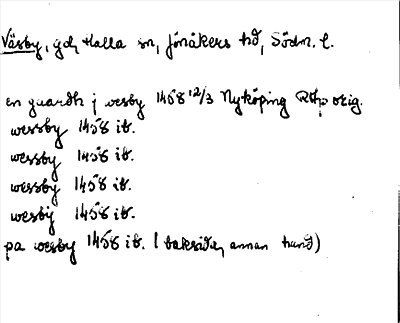 Väsby, gd, Halla sn, Jönåkers hd, Södm. l.
en guardh j wesby 1458 12/3 Nyköping RAp orig.
wessby 1458 ib.
wessby 1458 ib.
wessby 1458 ib.
wesby 1458 ib.
pa wesby 1458 ib. (baksidan, annan hand)